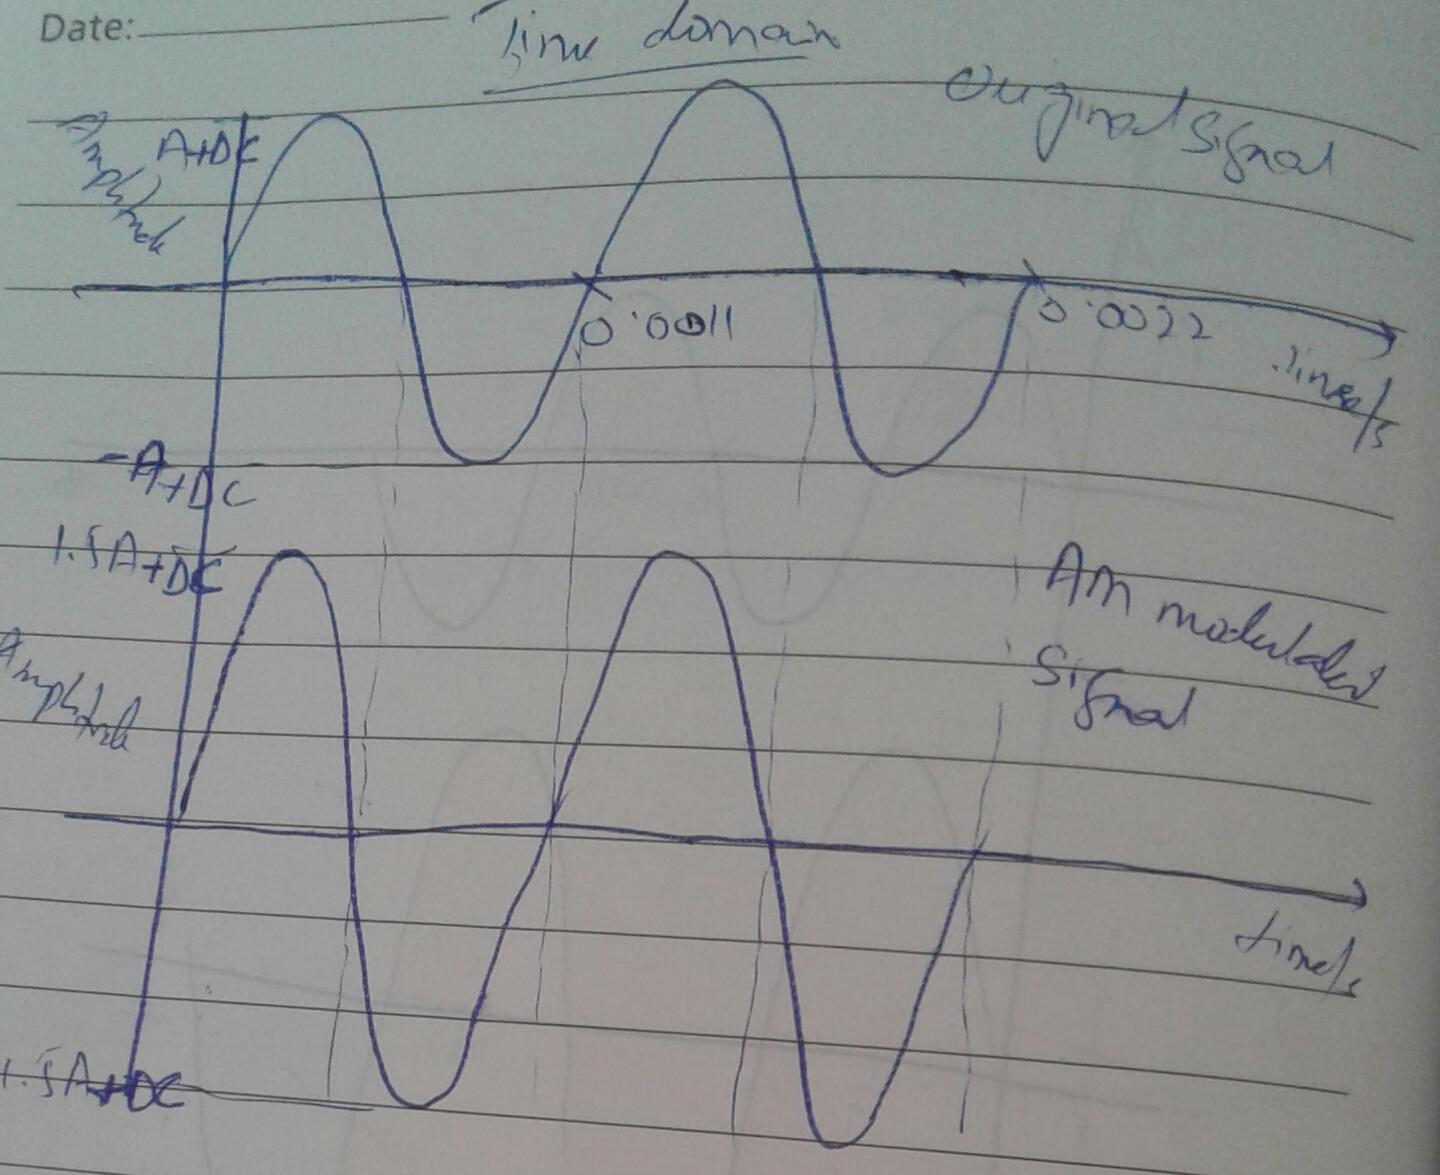 Date:
Time domain
Original Signal
Amplitude
A+DC
0.0011
0.0022
time/s
-A+DC
1.5A+DC
AM modulated
Signal
Amplitude
time/s
1.5A+DC